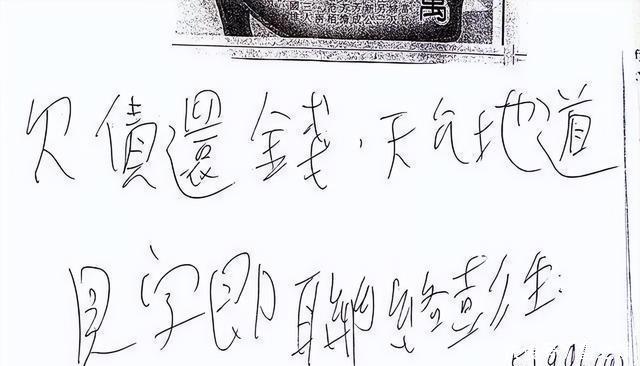 萬
欠債還錢,天公地道
見字即聯絡彭生: